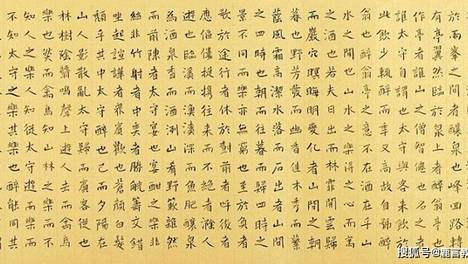 於兩峯之間者釀泉也峰回路轉
有亭翼然臨於泉上者醉翁亭也
作亭者誰山之僧智仙也名之者
誰太守自謂也太守與客來飲於
此飲少輒醉而年又最高故自號曰醉
翁也醉翁之意不在酒在乎山
水之間也山水之樂得之心而寓
之酒也若夫日出而林霏開雲歸
而巖穴暝晦明變化者山間之朝
暮也野芳發而幽香佳木秀而繁
蔭風霜高潔水落而石出者山間
之四時也朝而往暮而歸四時之
景不同而樂亦無窮也至於負者
歌於途行者休於樹前者呼後者
應傴僂提攜往來而不絕者滁人
遊也臨溪而漁溪深而魚肥釀泉
為酒泉香而酒洌山肴野蔌雜然
而前陳者太守宴也宴酣之樂非
絲非竹射者中弈者勝觥籌交錯
坐起諠譁者眾賓歡也蒼顏白髮
頹乎其中太守醉也已而夕陽在
山人影散亂太守歸而賓客從也
林樹陰翳鳴聲上下遊人去而禽鳥
樂也然而禽鳥知山林之樂而不
知人之樂人知從太守遊而樂而
不知太守之樂其樂也醉能同其
搜狐号@雅言教